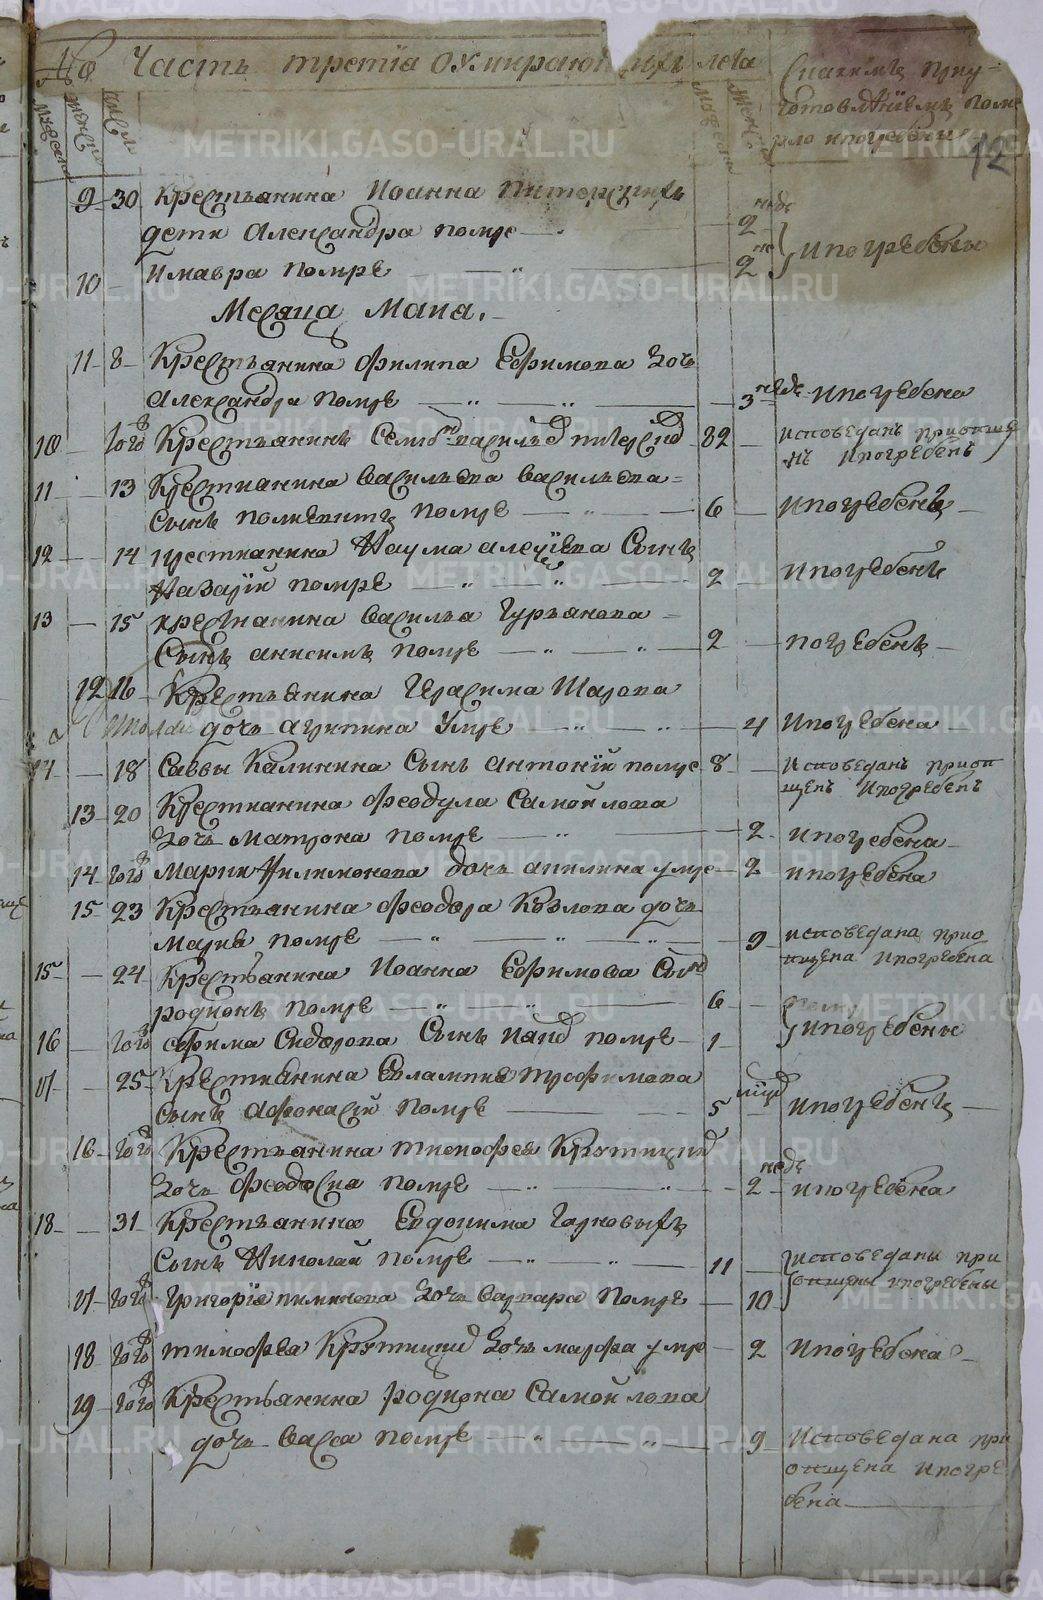 № Часть третiя оумирающихъ лета
Скакимъ приу-
готовлѣнiемъ поме
рло ипогребены
12
мужеска женска числа мужеска женска
9 30 Крестьянина Иоанна Питерскихъ
дети Александра помре 2 неде
10 Имавра помре 2 не ипогребены
Месяца Маиа.
11 8 Крестьянина Филипа Ефимова дочь
Александра помре 3 неде ипогребена
10 того Крестьянинъ Семiонъ васильев питерски 82 исповеданъ приопще
нъ ипогребенъ
11 13 Крестианина Василья Васильева
сынъ помре 6 ипогребенъ
12 14 крестианина Наума алеѯiева Сынъ
Назарiй помре 2 ипогребенъ
13 15 крестианина Василья Гурьянова
Сынъ анисимъ помре 2 погребенъ
12 16 Крестьянина Герасима Шарова
дочь агрипина Умре 4 ипогребена
14 18 Саввы Калинина Сынъ антонiй помре 8 Исповеданъ приоп
щенъ Ипогребенъ
13 20 Крестианина Феодула Самойлова
дочь Матрона помре 2 ипогребена
14 того Марки Филимонова дочь акилина умре 2 ипогребена
15 23 Крестьянина Феодора Козлова дочь
Мариа помре 9 исповедана прио
пщена Ипогребена
15 24 Крестьянина Иоанна Ефимова Сынъ
родионъ помре 6
16 того Ефима Сидорова Сынъ помре 1 ипогребены
17 25 Крестианина Евлампиа трофимова
сынъ Афонасiй помре 5 ипогребенъ
16 того Крестьянина тимофея Крутицки
дочь Феодосиа помре 2 неде ипогребена
18 31 Крестьянина Евдокима Горновыхъ
Сынъ Николай помре 11 исповеданы при
опщены ипогребены
17 того Григорiя пиминова дочь варвара помре 10
18 того тимофеа Крутицки дочь марфа умре 2 Ипогребена
19 того Крестьянина родиона Самойлова
дочь Васса помре 9 Исповедана при
опщена Ипогре
бена
METRIKI.GASO-URAL.RU